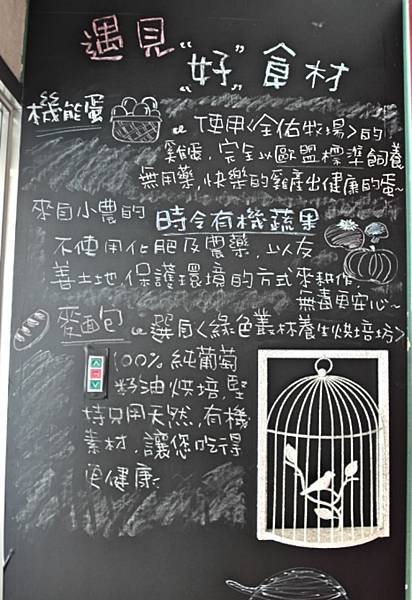 遇見
"好"食材
機能蛋
使用<全佑牧場>的
雞蛋,完全以歐盟標準飼養
無用藥,快樂的雞產出健康的蛋~
來自小農的 時令有機蔬果
不使用化肥及農藥,以友
善土地,保護環境的方式來耕作,
無毒更安心~
麥面包 選自<綠色叢林養生烘培坊>
100%純葡萄
籽油烘培,堅
持只用天然,有機
素材,讓您吃得
更健康.